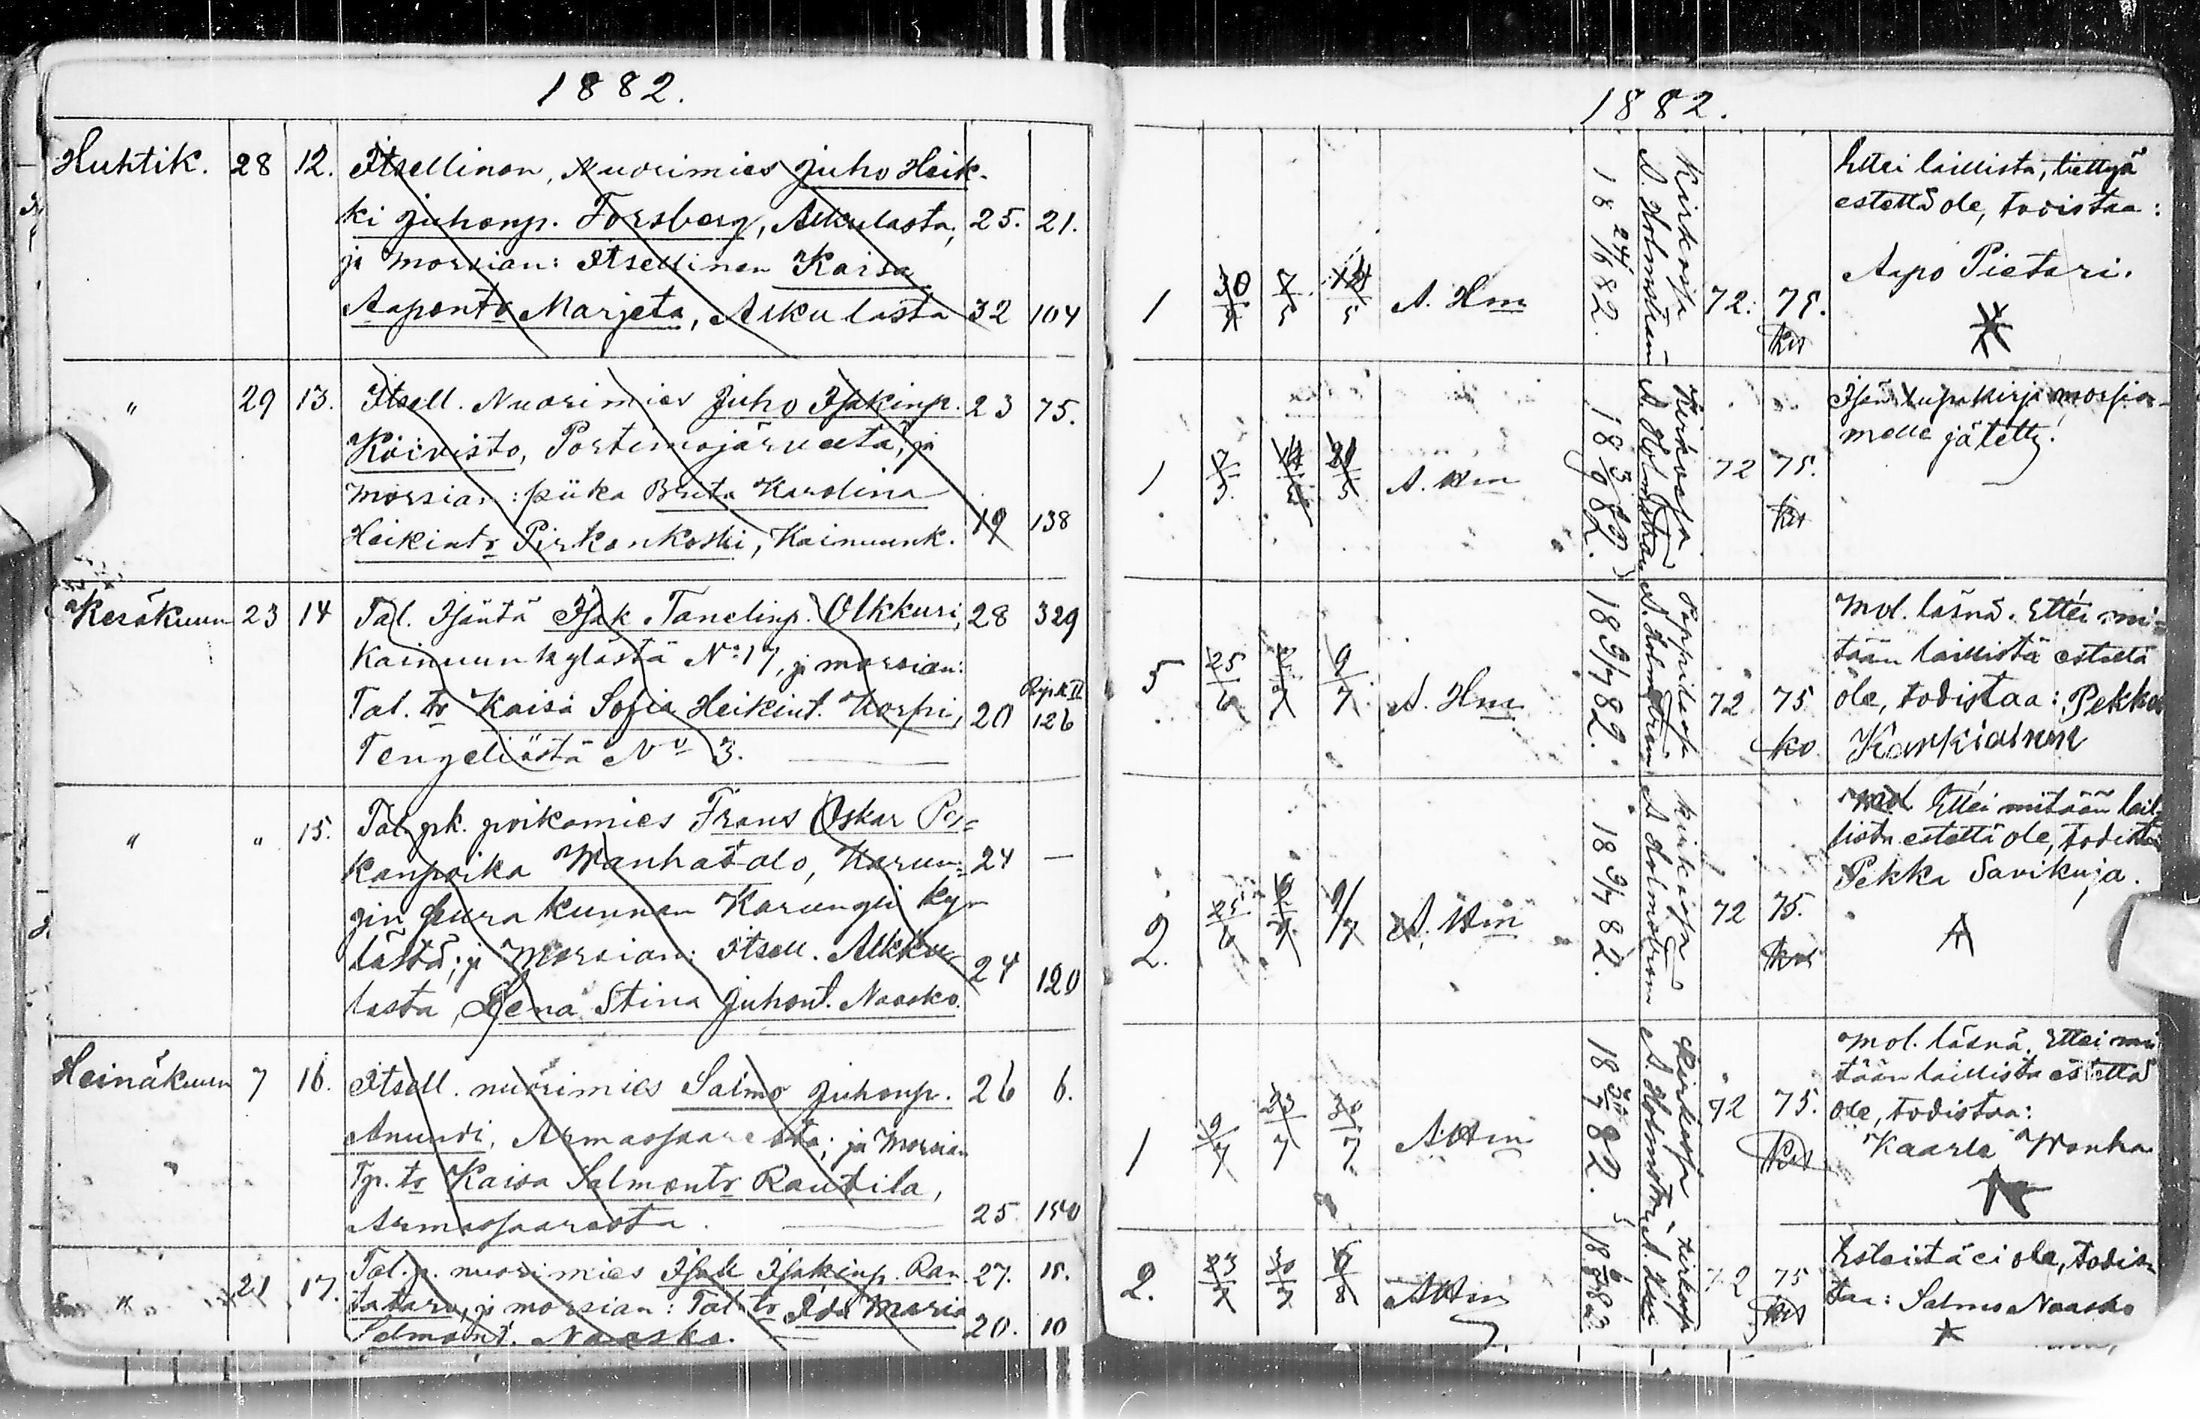 1882.
Huhtik. 28 12. Itsellinen, Nuorimies Juho Heik-
ki Juhonp. Forsberg, Alkulasta, 25. 21.
ja morsian: Itsellinen Kaisa
Aaponto Marjeta, Alkulasta 32 104
" 29 13. Itsell. Nuorimies Juho Isakinp. 23 75.
Koivisto, Portimojärveltä, ja
morsian: piika Brita Karolina
Heikintr Pirkonkoski, Kainuunk. 19 138
Kesäkuun 23 14 Tal. Isäntä Isak Tanelinp. Olkkuri, 28 329
Kainuunkylästä No 17, ja morsian:
Tal. tr Kaisa Sofia Heikint. Korpi, 20 Ripk. II 126
Tengeliöstä No 3.
" " 15. Tal. pk. poikamies Frans Oskar Pek=
kanpoika Wanhatalo, Karun= 24 —
gin seurakunnan Karungin ky-
lästä; ja Morsian: Itsell. Alkku- 24 120
lasta, Lena Stina Juhont. Naasko.
Heinäkuun 7 16. Itsell. nuorimies Salmo Juhonp. 26 6.
Anundi, Armassaaresta; ja Morsian
Tp. tr Kaisa Salmontr Rautila,
Armassaaresta. 25. 150
" 21 17. Tal. p. nuorimies Isak Isakinp. Ran 27. 15.
tatare, ja morsian: Tal. tr Ida Maria
Salmont. Naasko. 20. 10
1882.
Ettei laillista, tiettyä
estettä ole, todistaa:
Aapo Pietari.
1 30/4 7/5 14/5 A. Hm Kirkossa A. Holmström 18 24/6 82. 72. 75.
Isän lupakirja morsia-
melle jätetty.
1 7/5 14/5 21/5 A. Hm Kirkossa A. Holmström 18 3/9 82. 72 75.
Mol. läsnä. Ettei mi-
tään laillista estettä
5 25/6 2/7 9/7 A. Hm Pappilassa A. Holmström 18 9/7 82. 72 75 ole, todistaa: Pekka
ko Karkiainen
Ettei mitään lail-
lista estettä ole, todistaa
Pekka Savikuja.
2. 25/6 2/7 9/7 A. Hm Kirkossa A Holmström 18 9/7 82. 72 75.
Mol. läsnä. Ettei mi
tään laillista estettä
ole, todistaa:
Kaarle Wanha
1 9/7 23/7 30/7 A Hm Kirkossa A. Holmström 18 30/7 82. 72 75.
Esteitä ei ole, todis-
taa: Salmo Naasko
2. 23/7 30/7 6/8 A Hm Kirkossa 18 6/8 82. 72 75